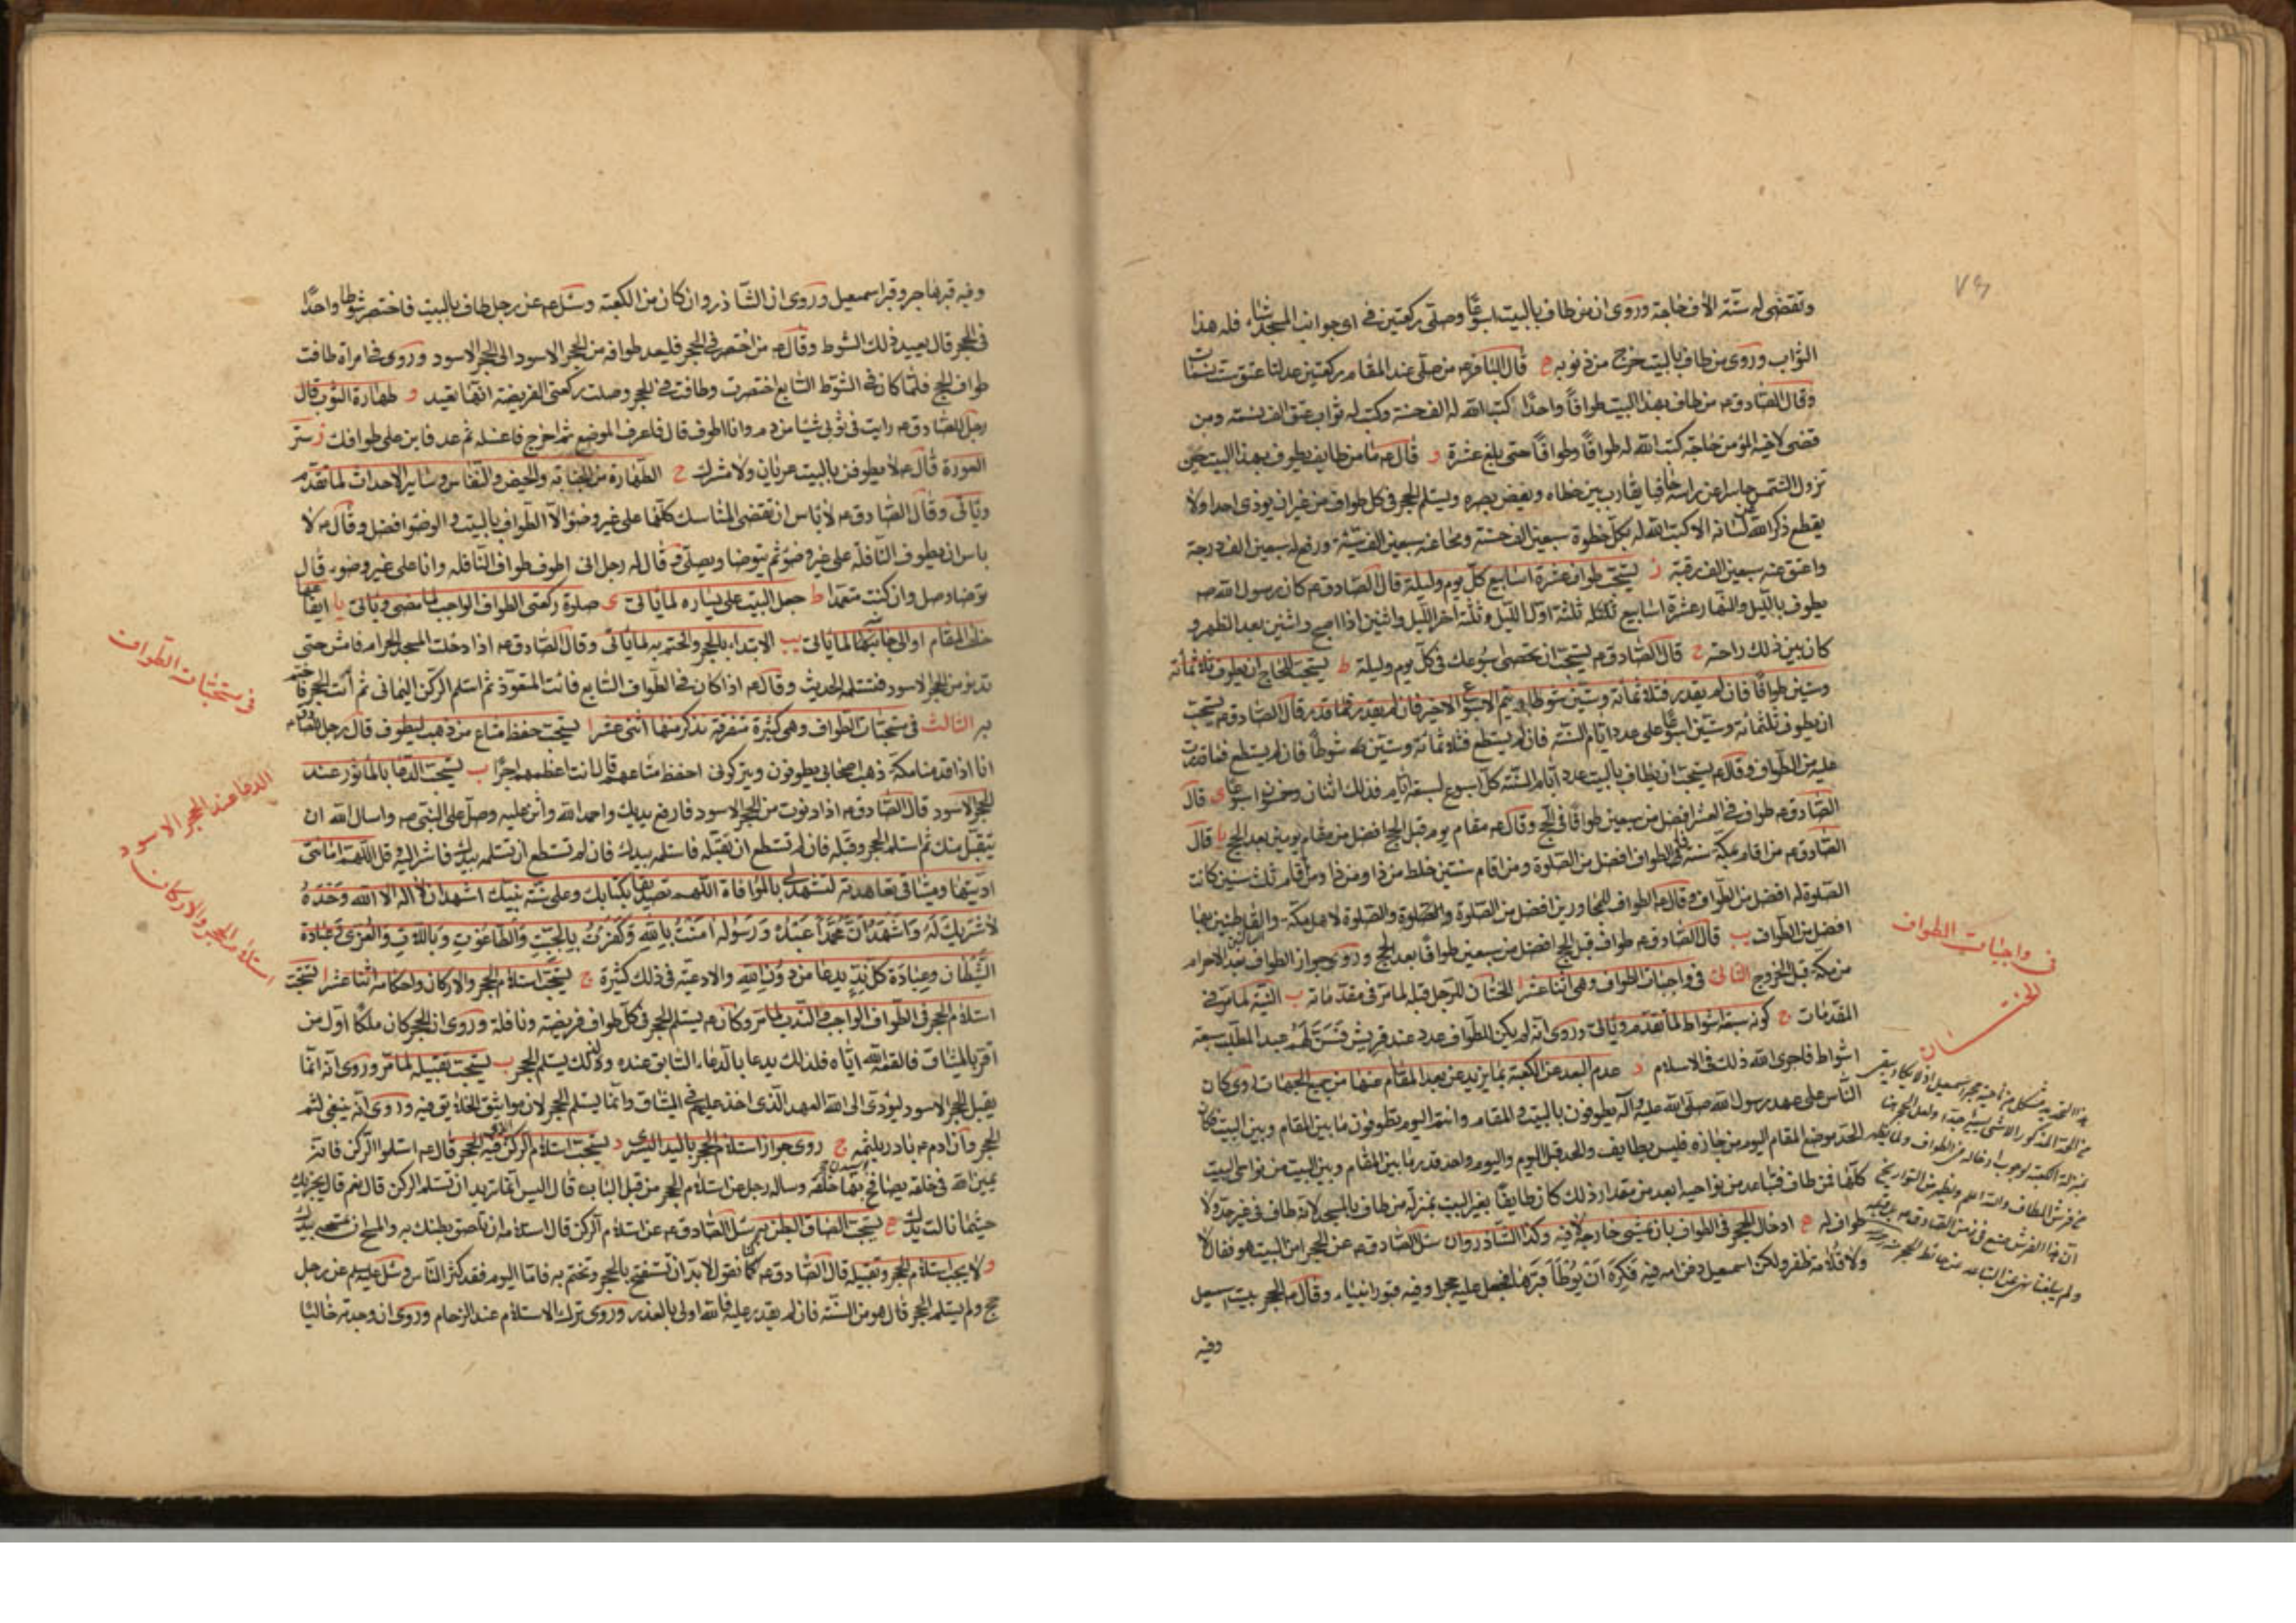 ٧٩
وتقضى له ستة الاف حاجة وروى ان من طاف بالبيت اسبوعا وصلى ركعتين فى اى جوانب المسجد شاء فله هذا
الثواب وروى من طاف بالبيت خرج من ذنوبه ه قال الباقر ع من صلى عند المقام ركعتين عدلتا عتق ست نسمات
وقال الصادق ع من طاف بهذا البيت طوافا واحدا كتب الله له الف حسنة وكتب له ثواب عتق الف نسمة ومن
قضى لاخيه المؤمن حاجة كتب الله له طوافا وطوافا حتى بلغ عشرة و قال ع ما من طايف يطوف بهذا البيت حين
تزول الشمس حاسرا عن راسه حافيا يقارب بين خطاه ويغض بصره ويستلم الحجر فى كل طواف من غير ان يوذى احدا ولا
يقطع ذكر الله عن لسانه الا كتب الله له بكل خطوة سبعين الف حسنة ومحا عنه سبعين الف سيئة ورفع له سبعين الف درجة
واعتق عنه سبعين الف رقبة ز يستحب طواف عشرة اسابيع كل يوم وليلة قال الصادق ع كان رسول الله ص
يطوف بالليل والنهار عشرة اسابيع ثلثة اول الليل وثلثة اخر الليل واثنين اذا اصبح واثنين بعد الظهر و
كان بين ذلك راحته ح قال الصادق ع يستحب ان تحصى اسبوعك فى كل يوم وليلة ط يستحب للحاج ان يطوف ثلاثمائة
وستين طوافا فان لم يقدر فثلاثمائة وستين شوطا ويتم الاسبوع الاخير فان لم يقدر فما قدر قال الصادق ع يستحب
ان يطوف ثلثمائة وستين اسبوعا على عدد ايام السنة فان لم يستطع فثلاثمائة وستين شوطا فان لم يستطع فما قدرت
عليه من الطواف وقال ع يستحب ان يطاف بالبيت عدد ايام السنة كل اسبوع لسبعة ايام فذلك اثنان وخمسون اسبوعا ى قال
الصادق ع طواف فى العشر افضل من سبعين طوافا فى الحج وقال ع مقام يوم قبل الحج افضل من مقام يومين بعد الحج يا قال
الصادق ع من اقام بمكة سنة فالطواف افضل من الصلوة ومن اقام سنتين خلط من ذا ومن ذا ومن اقام ثلث سنين كانت
الصلوة له افضل من الطواف وقال ع الطواف للمجاورين افضل من الصلوة والصلوة لاهل مكة والقاطنين بها
افضل من الطواف يب قال الصادق ع طواف قبل الحج افضل من سبعين طوافا بعد الحج وروى جواز الطواف بعد الاحرام
من مكة قبل الخروج الثانى فى واجبات الطواف وهى اثنا عشر ا الختان للرجل قبله لما مر فى مقدماته ب النية لما مر فى
المقدمات ج كونه سبعة اشواط لما تقدم وياتى وروى انه لم يكن للطواف عدد عند قريش فسن لهم عبد المطلب سبعة
اشواط فاجرى الله ذلك فى الاسلام د عدم البعد عن الكعبة بما يزيد عن بعد المقام عنها من جميع الجهات روى كان
الناس على عهد رسول الله صلى الله عليه وآله يطوفون بالبيت والمقام وانتم اليوم تطوفون ما بين المقام وبين البيت فكان
الحد موضع المقام اليوم من جازه فليس بطايف والحد قبل اليوم واليوم واحد قدر ما بين المقام وبين البيت من نواحى البيت
كلها فمن طاف فتباعد من نواحيه ابعد من مقدار ذلك كان طايفا بغير البيت بمنزلة من طاف بالمسجد لانه طاف فى غير حد ولا
طواف له ه ادخال الحجر فى الطواف بان يمشى خارجه لا فيه وكذا الشاذروان سئل الصادق ع عن الحجر امن البيت هو فقال لا
ولا قلامة ظفر ولكن اسمعيل دفن امه فيه فكره ان يوطأ قبرها فجعل عليه حجرا وفيه قبور انبياء وقال ع الحجر بيت اسمعيل
وفيه
فى واجبات الطواف
وفيه قبر هاجر وقبر اسمعيل وروى ان الشاذروان كان من الكعبة وسئل ع عن رجل طاف بالبيت فاختصر شوطا واحدا
فى الحجر قال يعيد ذلك الشوط وقال ع من اختصر فى الحجر فليعد طوافه من الحجر الاسود الى الحجر الاسود وروى فى امراة طافت
طواف الحج فلما كان فى الشوط السابع اختصرت وطافت فى الحجر وصلت ركعتى الفريضة انها تعيد و طهارة الثوب قال
رجل للصادق ع رايت فى ثوبى شيئا من دم وانا اطوف قال فاعرف الموضع ثم اخرج فاغسله ثم عد فابن على طوافك ز ستر
العورة قال ع لا يطوفن بالبيت عريان ولا مشرك ح الطهارة من الجنابة والحيض والنفاس وساير الاحداث لما تقدم
وياتى وقال الصادق ع لا باس ان تقضى المناسك كلها على غير وضوء الا الطواف بالبيت والوضوء افضل وقال ع لا
باس ان يطوف النافلة على غير وضوء ثم يتوضا ويصلى وقال له رجل انى اطوف طواف النافلة وانا على غير وضوء قال
توضا وصل وان كنت متعمدا ط جعل البيت على يساره لما ياتى ى صلوة ركعتى الطواف الواجب لما مضى وياتى يا ايقاعهما
خلف المقام او الى جانبيه لما ياتى يب الابتداء بالحجر والختم به لما ياتى وقال الصادق ع اذا دخلت المسجد الحرام فامش حتى
تدنو من الحجر الاسود فتستلمه الحديث وقال ع اذا كان فى الطواف السابع فائت المتعوذ ثم استلم الركن اليمانى ثم ائت الحجر فاختم
به الثالث فى مستحبات الطواف وهى كثيرة متفرقة نذكر منها اثنى عشر ا يستحب حفظ متاع من ذهب ليطوف قال رجل للصادق ع
انا اذا قدمنا مكة ذهب اصحابى يطوفون ويتركونى احفظ متاعهم قال انت اعظمهم اجرا ب يستحب الدعا بالماثور عند
الحجر الاسود قال الصادق ع اذا دنوت من الحجر الاسود فارفع يديك واحمد الله واثن عليه وصل على النبى ص واسال الله ان
يتقبل منك ثم استلم الحجر وقبله فان لم تستطع ان تقبله فاستلمه بيدك فان لم تستطع ان تستلمه بيدك فاشر اليه وقل اللهم امانتى
اديتها وميثاقى تعاهدته لتشهد لى بالموافاة اللهم تصديقا بكتابك وعلى سنة نبيك اشهد ان لا اله الا الله وحده
لا شريك له واشهد ان محمدا عبده ورسوله امنت بالله وكفرت بالجبت والطاغوت وباللات والعزى وعبادة
الشيطان وعبادة كل ند يدعا من دون الله والادعية فى ذلك كثيرة ج يستحب استلام الحجر والاركان واحكامه اثنا عشر ا يستحب
استلام الحجر فى الطواف الواجب والندب لما مر وكان ع يستلم الحجر فى كل طواف فريضة ونافلة وروى ان الحجر كان ملكا اول من
اقر بالميثاق فالقمه الله اياه فلذلك يدعا بالدعاء السابق عنده ولذلك يستلم الحجر ب يستحب تقبيله لما مر وروى انه انما
يقبل الحجر الاسود ليؤدى الى الله العهد الذى اخذ عليهم فى الميثاق وانما يستلم الحجر لان مواثيق الخلايق فيه وروى انه ينبغى لثم
الحجر وان ادم ع نادر يلثمه ج روى جواز استلام الحجر باليد اليسرى د يستحب استلام الركن الذى فيه الحجر قال ع استلموا الركن فانه
يمين الله فى خلقه يصافح بها خلقه وساله رجل عن استلام الحجر من قبل الباب قال اليس انما تريد ان تستلم الركن قال نعم قال يجزيك
حيثما نالت يدك ه يستحب الصاق البطن به سئل الصادق ع عن استلام الركن قال استلامه ان تلصق بطنك به والمسح ان تمسحه بيدك
و لا يجب استلام الحجر وتقبيله قال الصادق ع كنا نقول لا بد ان تستفتح بالحجر وتختم به فاما اليوم فقد كثر الناس وسئل عليه السلم عن رجل
حج ولم يستلم الحجر قال هو من السنة فان لم يقدر عليه فالله اولى بالعذر وروى ترك الاستلام عند الزحام وروى ان وجدته خاليا
فى مستحبات الطواف
الدعا عند الحجر الاسود
استلام الحجر والاركان